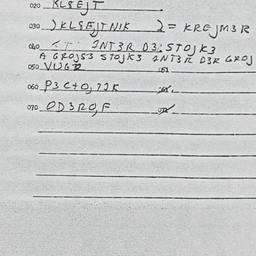 020 KLSEJT
030 ) KLSEJTNIK 2 = KREJM3R
040 INT3R D3: STOJK3
A GROJS3 STOJK3 INT3R D3R GROJ
050 VUG
060 P3C+O, 72K
070 OD3RO,F